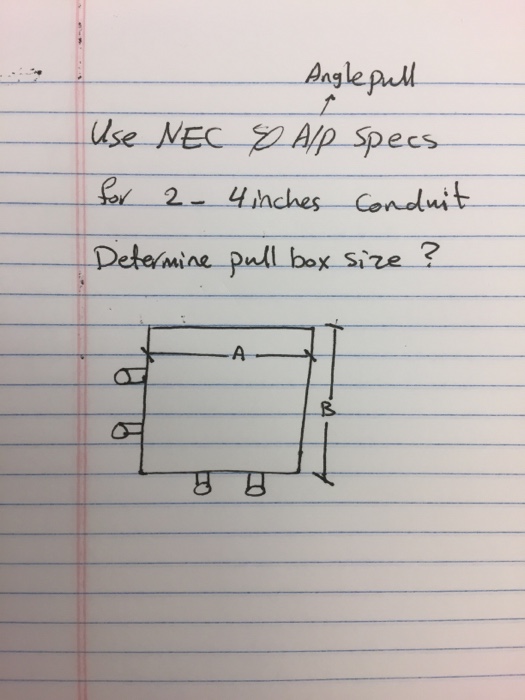 Angle pull
Use NEC & A/P specs
for 2 - 4 inches conduit
Determine pull box size ?
A
B